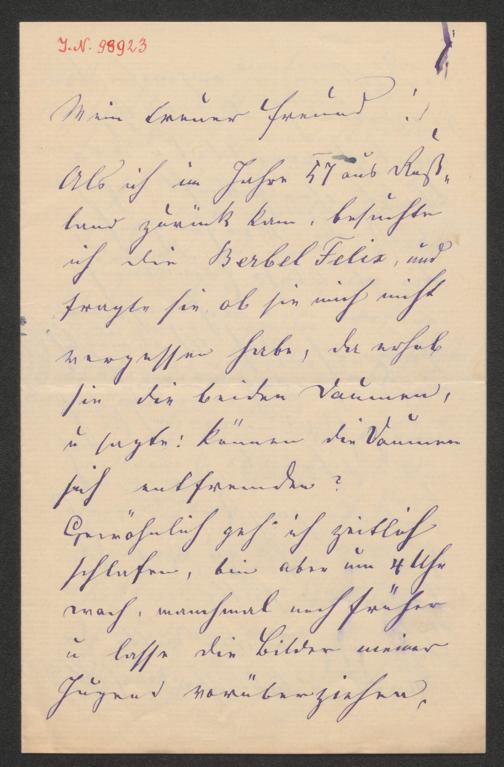 J.N. 98923
Mein treuer Freund!
Als ich im Jahre 57 aus Ruß-
land zurück kam, besuchte
ich die Berbel Felix, und
fragte sie, ob sie mich nicht
vergessen habe, da erhob
sie die beiden Daumen,
u sagte: können die Daumen
sich entfremden?
Gewöhnlich geh' ich zeitlich
schlafen, bin aber um 4 Uhr
wach, manchmal noch früher
u lasse die Bilder meiner
Jugend vorüberziehen,